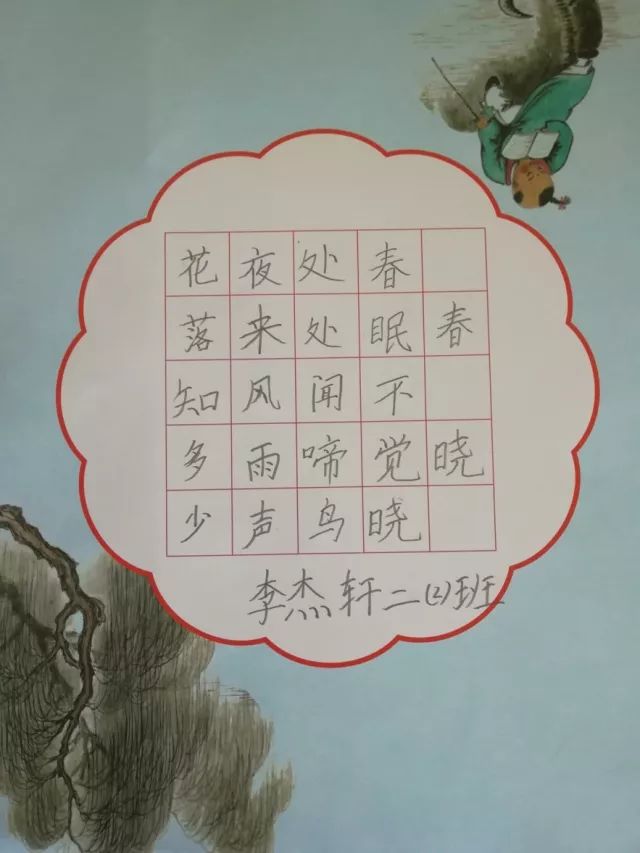 春晓
春眠不觉晓
处处闻啼鸟
夜来风雨声
花落知多少
李杰轩二(2)班